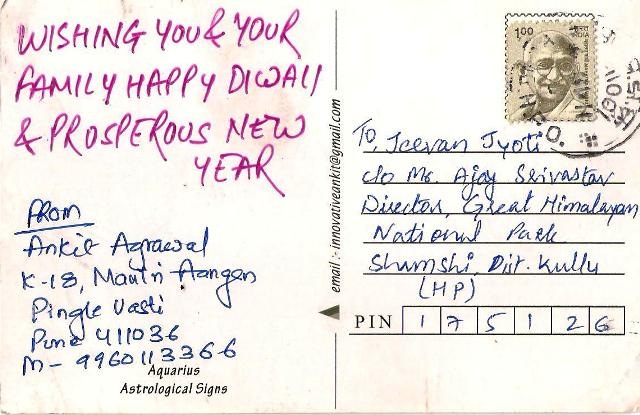 WISHING YOU & YOUR
FAMILY HAPPY DIWALI
& PROSPEROUS NEW
YEAR
FROM
Ankit Agrawal
K-18, Mantri Aangan
Pingle Vasti
Pune 411036
M- 9960113366
Aquarius
Astrological Signs
email :- innovativeankit@gmail.com
1.00
INDIA
To,
Jeevan Jyoti
c/o Mr. Ajay Srivastav
Director, Great Himalayan
National Park
Shumshi, Dist. Kullu
(HP)
PIN 175126